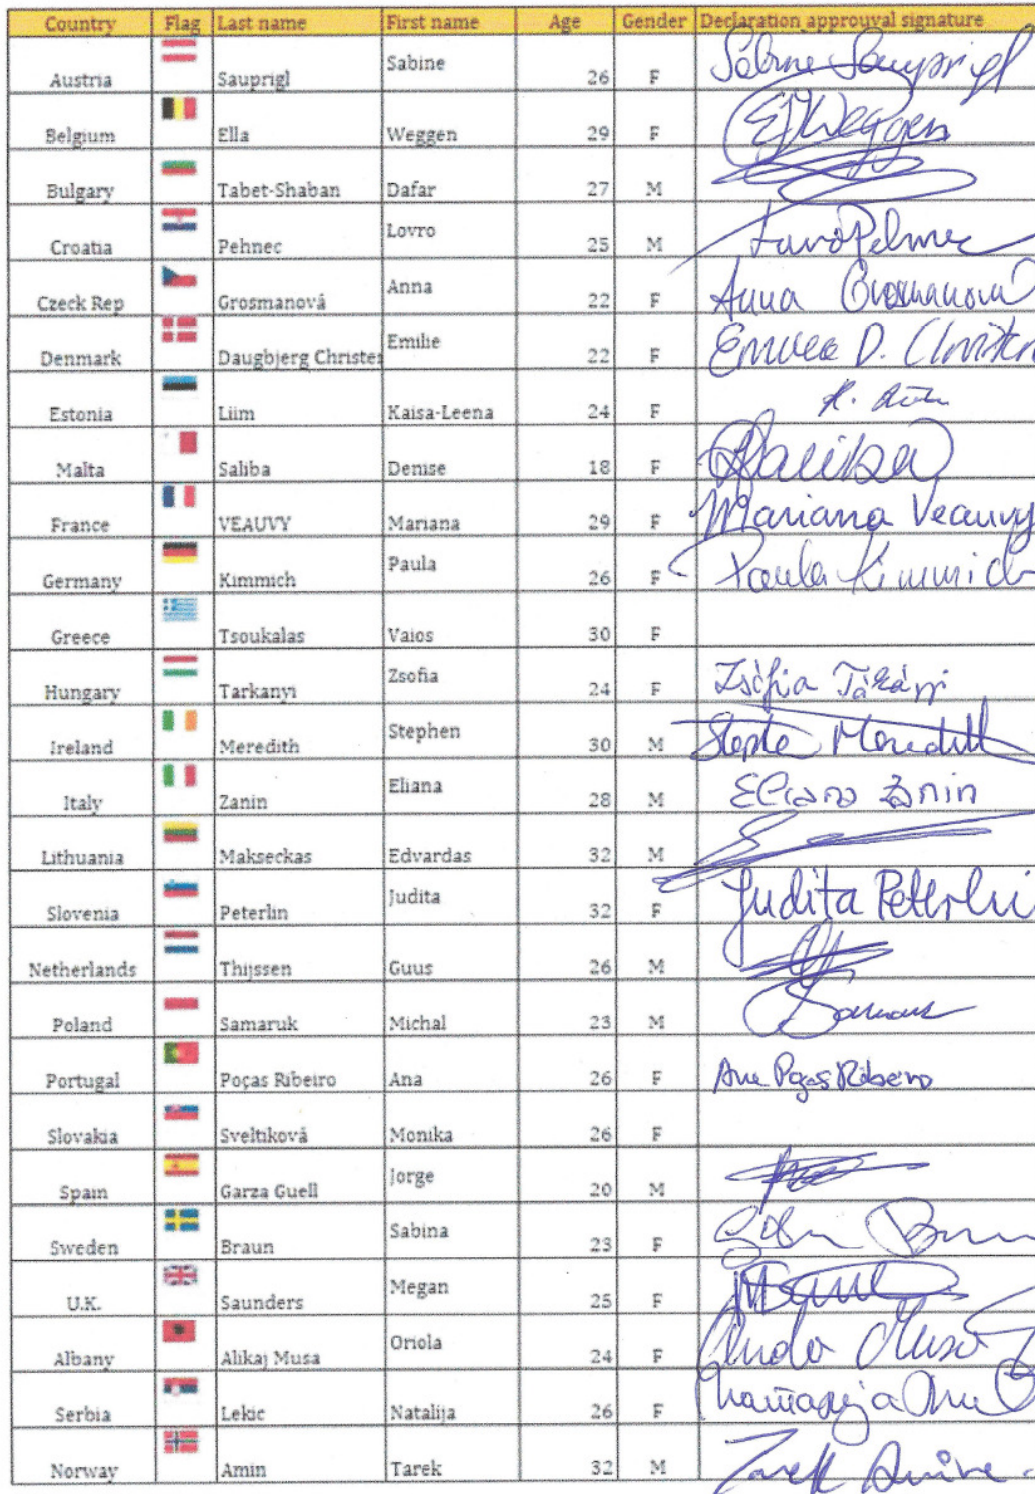 Country Flag Last name First name Age Gender Declaration approuval signature
Austria Sauprigl Sabine 26 F Sabine Sauprigl
Belgium Ella Weggen 29 F EJWeggen
Bulgary Tabet-Shaban Dafar 27 M
Croatia Pehnec Lovro 25 M
Czeck Rep Grosmanová Anna 22 F Anna Grosmanová
Denmark Daugbjerg Christe Emilie 22 F Emilie D. Christen
Estonia Liim Kaisa-Leena 24 F K.
Malta Saliba Denise 18 F DSaliba
France VEAUVY Mariana 29 F Mariana Veauvy
Germany Kimmich Paula 26 F Paula Kimmich
Greece Tsoukalas Vaios 30 F
Hungary Tarkanyi Zsofia 24 F Zsófia
Ireland Meredith Stephen 30 M Meredith
Italy Zanin Eliana 28 M Eliana Zanin
Lithuania Makseckas Edvardas 32 M
Slovenia Peterlin Judita 32 F Judita Peterlin
Netherlands Thijssen Guus 26 M
Poland Samaruk Michal 23 M
Portugal Poças Ribeiro Ana 26 F Ana Poças Ribeiro
Slovakia Sveltiková Monika 26 F
Spain Garza Guell Jorge 20 M
Sweden Braun Sabina 23 F
U.K. Saunders Megan 25 F
Albany Alikaj Musa Oriola 24 F Musa
Serbia Lekic Natalija 26 F
Norway Amin Tarek 32 M Tarek